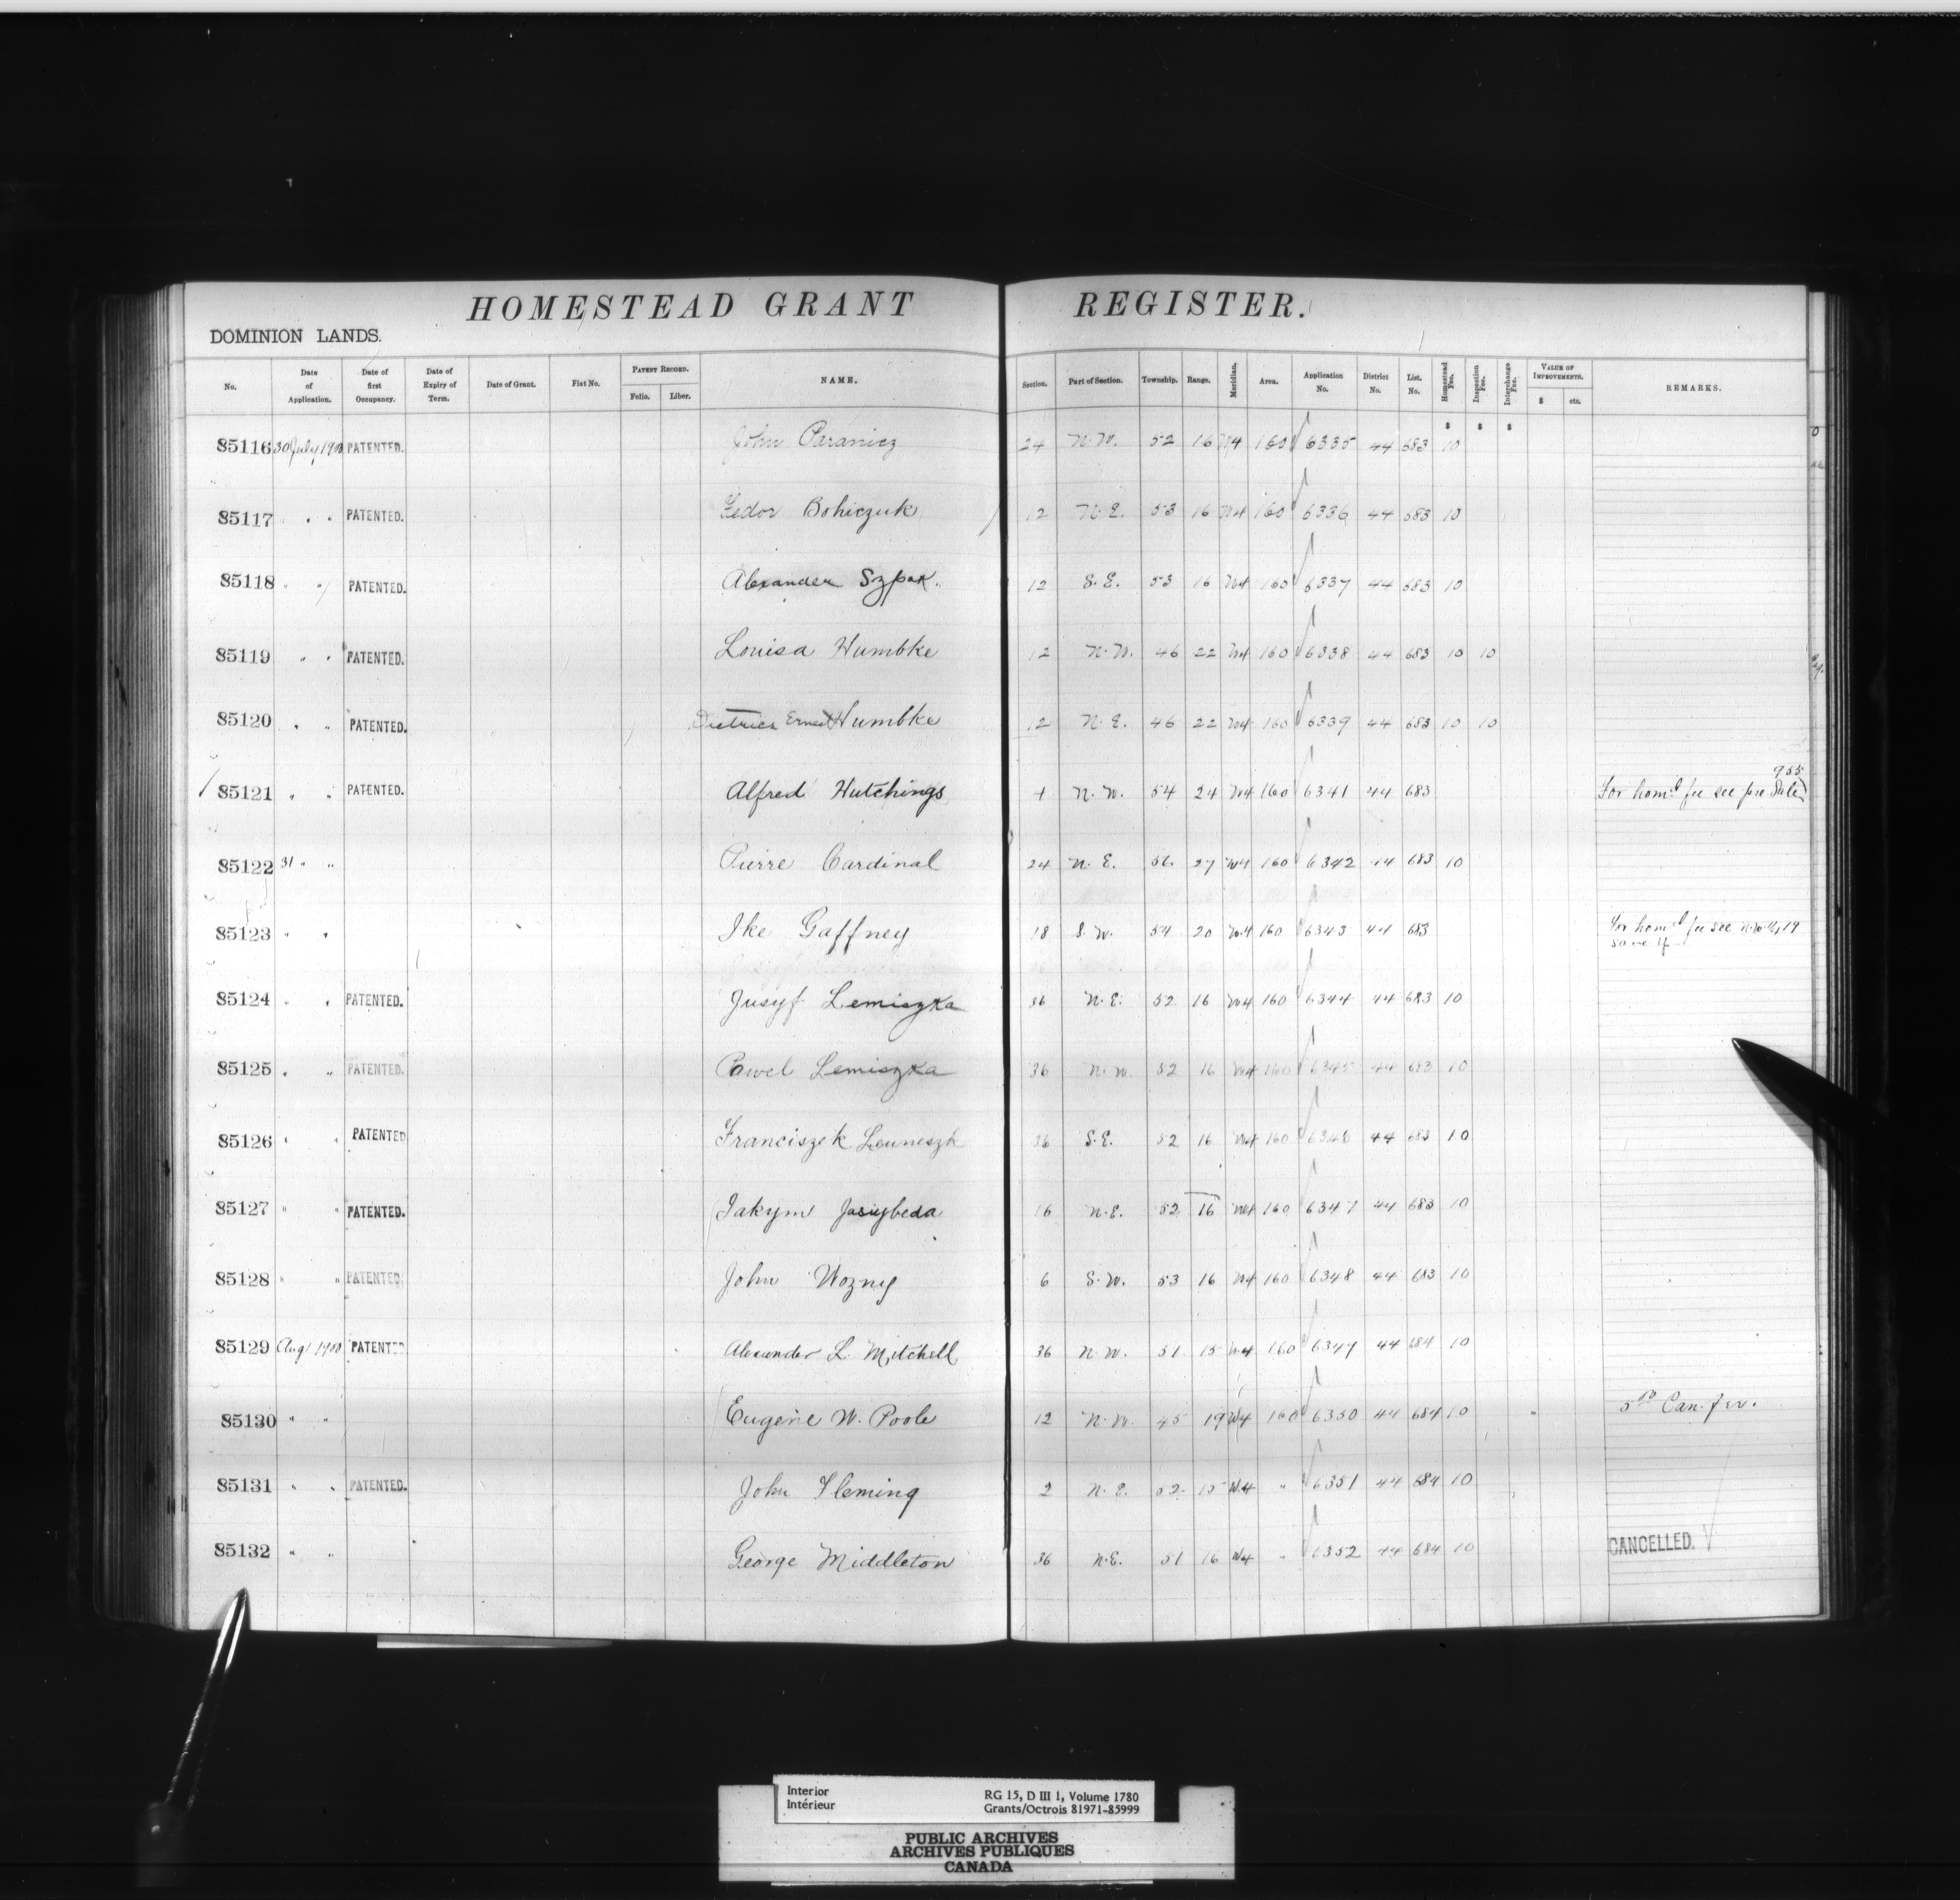 HOMESTEAD GRANT REGISTER.
DOMINION LANDS.
No. Date of Application. Date of first Occupancy. Date of Expiry of Term. Date of Grant. Fiat No. PATENT RECORD. Folio. Liber. NAME. Section. Part of Section. Township. Range. Meridian. Area. Application No. District No. List. No. Homestead Fee. Inspection Fee. Interchange Fee. VALUE OF IMPROVEMENTS. $ cts. REMARKS.
$ $ $
85116 30 July 1900 PATENTED. John Paranicz 24 N.W. 52 16 W4 160 6335 44 683 10
85117 " " PATENTED. Fedor Bohiczuk 12 N.E. 53 16 W4 160 6336 44 683 10
85118 " " PATENTED. Alexander Szpak. 12 S.E. 53 16 W4 160 6337 44 683 10
85119 " " PATENTED. Louisa Humbke 12 N.W. 46 22 W4 160 6338 44 683 10 10
85120 " " PATENTED. Ernest Humbke 12 N.E. 46 22 W4 160 6339 44 683 10 10
85121 " " PATENTED. Alfred Hutchings 4 N.W. 54 24 W4 160 6341 44 683 For homd fee see pre Sale 955
85122 31 " " Pierre Cardinal 24 N.E. 27 W4 160 6342 44 683 10
85123 " " Ike Gaffney 18 S.W. 54 20 W4 160 6343 44 683 For homd fee see N.W.¼, 19
same
85124 " " PATENTED. Jusyf Lemiszka 36 N.E. 52 16 W4 160 6344 44 683 10
85125 " " PATENTED. Pawel Lemiszka 36 N.W. 52 16 W4 160 6345 44 683 10
85126 " " PATENTED Franciszek 36 S.E. 52 16 W4 160 6346 44 683 10
85127 " " PATENTED. Jakym 16 N.E. 52 16 W4 160 6347 44 683 10
85128 " " PATENTED. John Wozny 6 S.W. 53 16 W4 160 6348 44 683 10
85129 Aug 1 1900 PATENTED Alexander L. Mitchell 36 N.W. 51 15 W4 160 6349 44 684 10
85130 " " Eugene W. Poole 12 N.W. 45 19 W4 160 6350 44 684 10 "
85131 " " PATENTED. John Fleming 2 N.E. 52 15 W4 " 6351 44 684 10
85132 " " George Middleton 36 N.E. 51 16 W4 " 6352 44 684 10 CANCELLED.
Interior
Intérieur
RG 15, D III 1, Volume 1780
Grants/Octrois 81971-85999
PUBLIC ARCHIVES
ARCHIVES PUBLIQUES
CANADA